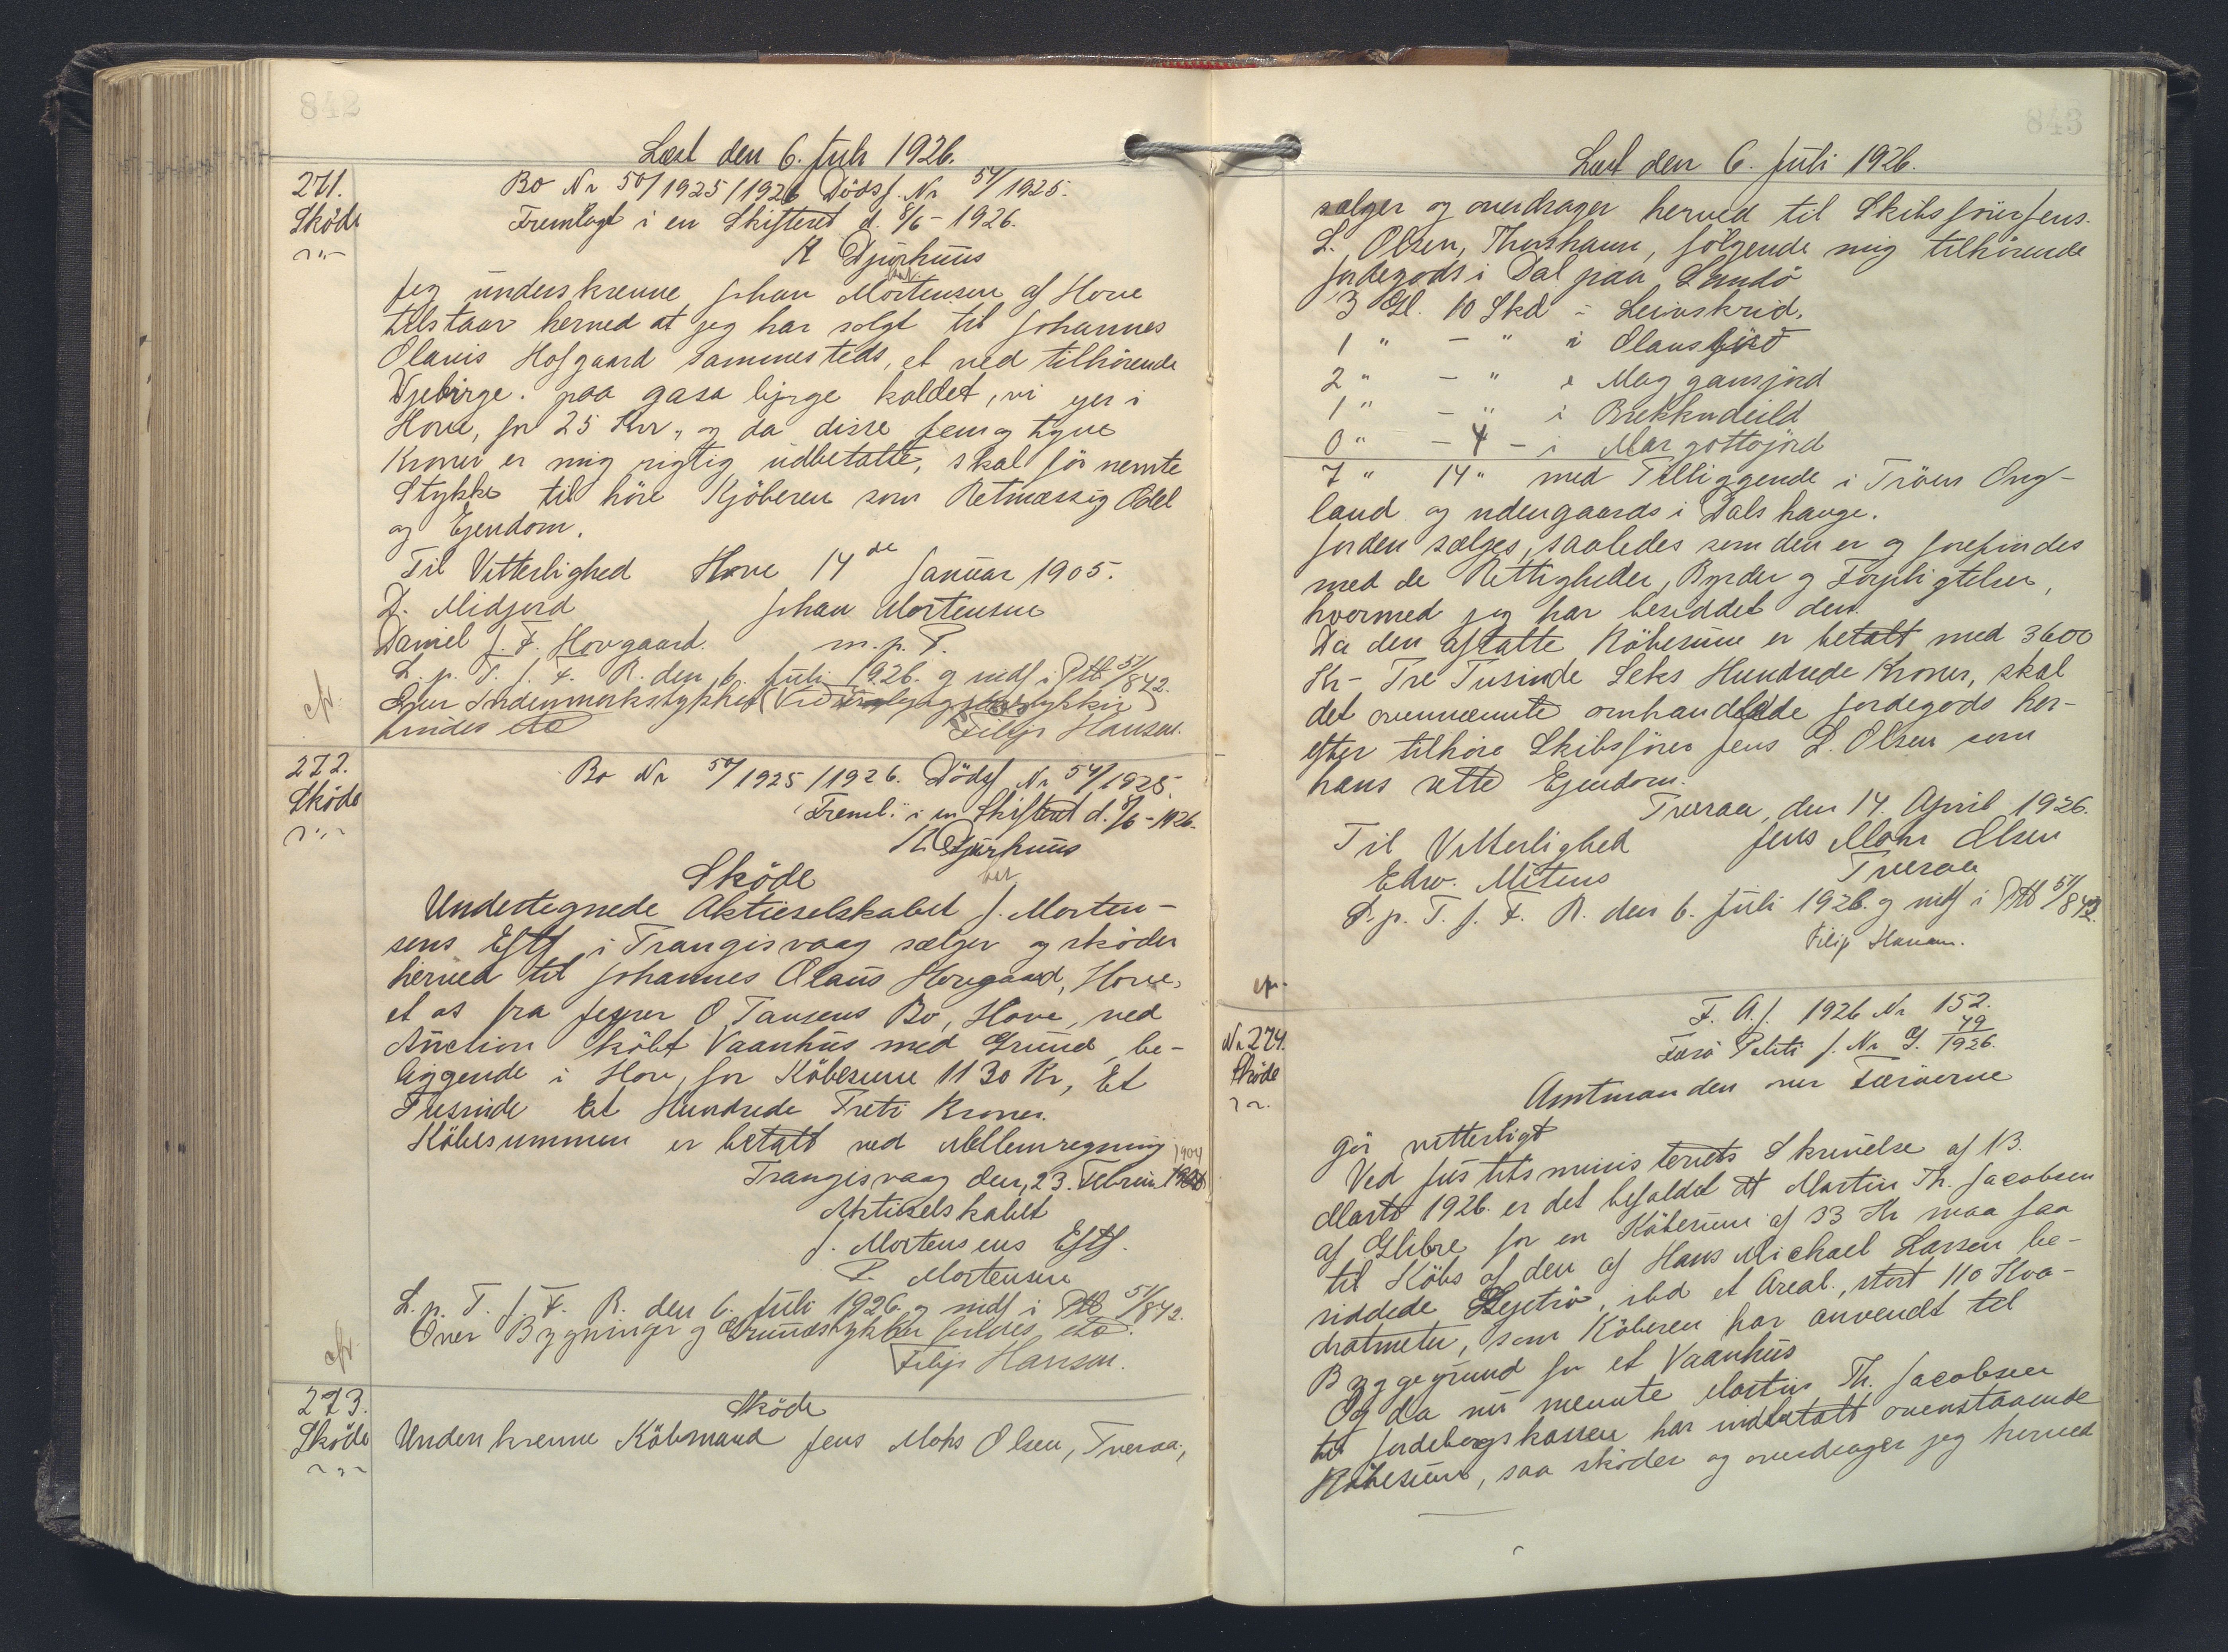 842
Læst den 6. Juli 1926.
271.
Sköde
Bo Nr 50/1925/1926 Dödsf. Nr 54/1925.
Fremlagt i en Skifteret d. 8/6 - 1926.
K Djurhuus
Jeg underskrevne Johan Mortensen af Hove
tilstaar herved at jeg har solgt til Johannes
Olavis Hofgaard sammesteds, et ved tilhörende
paa gasa kaldet, vi yer i
Hove, for 25 Krr, og da disse fem og tyve
Kroner er mig rigtig udbetalte, skal för nemte
Stykke til höre Kjöberen som Retmæssig Odel
og Ejendom.
Til Vitterlighed Hove 14de Januar 1905.
D. Midjord Johan Mortensen
Daniel J. F. Hovgaard. m. p. P.
L. p. T. f. F. R. den 6. Juli 1926. og indf i Ptb 51/842.
Over Indenmarkstykket
findes etc Filip Hansen.
cfr.
272.
Sköde
Bo Nr 50/1925/1926. Dödsf Nr 54/1925.
Freml. i en Skifteret d. 8/6 - 1926.
K. Djurhuus
Sköde
Undertegnede Aktieselskabet J. Morten-
sens Eftf i Trangisvaag sælger og sköder
herved til Johannes Olaus Hovgaard, Hove,
et os fra Jesper O Tausens Bo, Hove, ved
Auction köbt Vaanhus med Grund, be-
liggende i Hove, for Köbesum 1130 Kr, Et
Tusinde Et Hundrede Treti Kroner.
Köbesummen er betalt ved Mellemregning
Trangisvaag den, 23. Februar 1904
Aktieselskabet
J. Mortensens Eftf.
P. Mortensen
L. p. T. f. F. R. den 6. Juli 1926 og indf i Ptb 51/842.
Over Bygninger og Grundstykker findes etc.
Filip Hansen.
cfr.
273.
Sköde
Sköde
Underskrevne Köbmand Jens Mohr Olsen, Tveraa,
843
Læst den 6. Juli 1926.
sælger og overdrager herved til Skibsförer Jens
L. Olsen, Thorshavn, fölgende mig tilhörende
Jordegods i Dal paa Sandö
3 Gl. 10 Skd i Leivskrid.
1 " - " i Olansjörd
2 " - " i Maggansjörd
1 " - " i Brekkudeild
0 " - 4 - i Margottojörd
7 " 14 " med Tilliggende i Tröen Ong-
land og udengaards i Dals hauge.
Jorden sælges, saaledes som den er og forefindes
med de Rettigheder, Byrder og Forpligtelser,
hvormed jeg har besiddet den.
Da den aftalte Köbesum er betalt med 3600
Kr - Tre Tusinde Seks Hundrede Kroner, skal
det ovennævnte omhandlede Jordegods her-
efter tilhöre Skibsförer Jens L. Olsen som
hans rette Ejendom.
Tveraa, den 14 April 1926.
Til Vitterlighed Jens Mohr Olsen
Edw. Mitens Tveraa
L. p. T. f. F. R. den 6. Juli 1926 og indf i Ptb 51/843.
Filip Hansen.
cfr.
Nr. 274.
Sköde
F. A. J. 1926 Nr 152.
Færö Politi J. Nr G. 49/1926.
Amtmanden over Færöerne
gör vitterligt
Ved Justitsministeriets Skrivelse af 13.
Marts 1926. er det befaldet at Martin Th. Jacobsen
af Glibre for en Köbesum af 33 Kr maa faa
til Köbs af den af Hans Michael Larsen be-
siddede Fæstejord, ibd et Areal, stort 110 Kva-
dratmeter, som Köberen har anvendt til
Byggegrund for et Vaanhus
Og da nu nævnte Martin Th. Jacobsen
til Jordebogskassen har indbetalt ovenstaaende
Köbesum, saa sköder og overdrager jeg herved